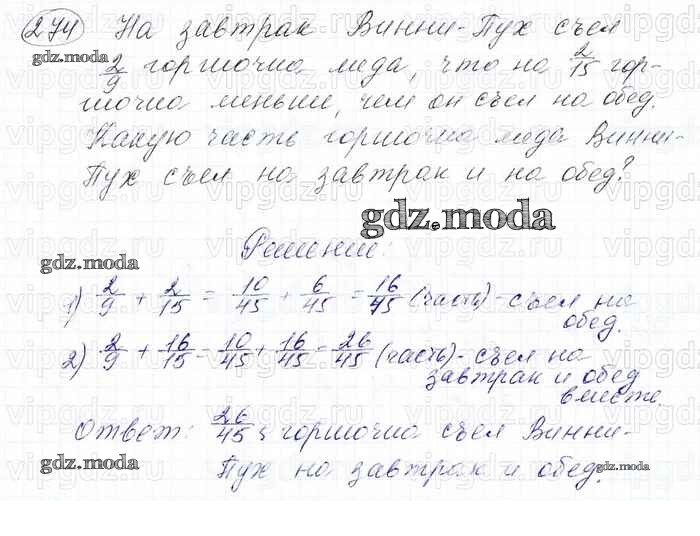 274) На завтрак Винни-Пух съел
2/9 горшочка меда, что на 2/15 гор-
шочка меньше, чем он съел на обед.
Какую часть горшочка меда Винни-
Пух съел на завтрак и на обед?
gdz.moda
Решение:
gdz.moda
1) 2/9 + 2/15 = 10/45 + 6/45 = 16/45 (часть) - съел на
обед.
2) 2/9 + 16/15 = 10/45 + 16/45 = 26/45 (часть) - съел на
завтрак и обед
вместе.
Ответ: 26/45 горшочка съел Винни-
Пух на завтрак и обед.
gdz.moda
gdz.moda